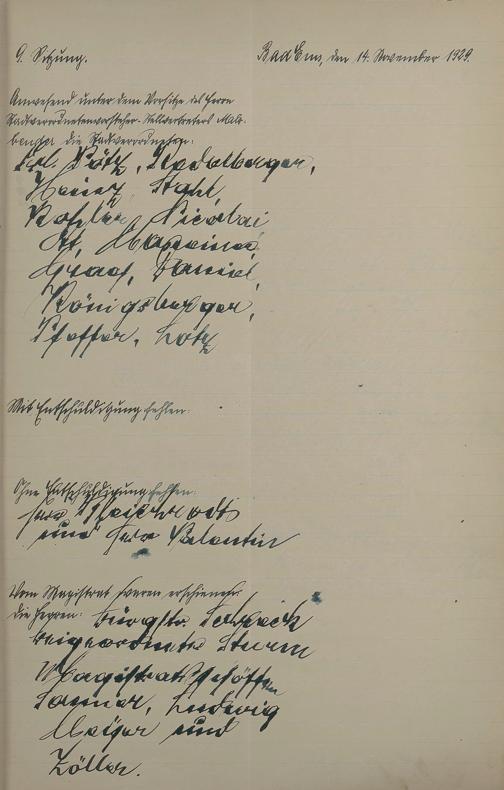 9. Sitzung.
Bad Ems, den 14. November 1929.
Anwesend unter dem Vorsitze des Herrn
Stadtverordnetenvorsteher-Stellvertreters
die Stadtverordneten:
Frl. Pötz,
Heinz, Stahl,
Kohler, Nicolai
Graef, Daniel,
Königsberger,
Pfeffer, Lotz
Mit Entschuldigung fehlen:
Ohne Entschuldigung fehlen:
Herr
und Herr Valentin
Vom Magistrat waren erschienen
die Herren: Bürgstr. Schreck
Beigeordneter Sturm
Magistratsschöffen
Ludwig
Meyer und
Zöller.